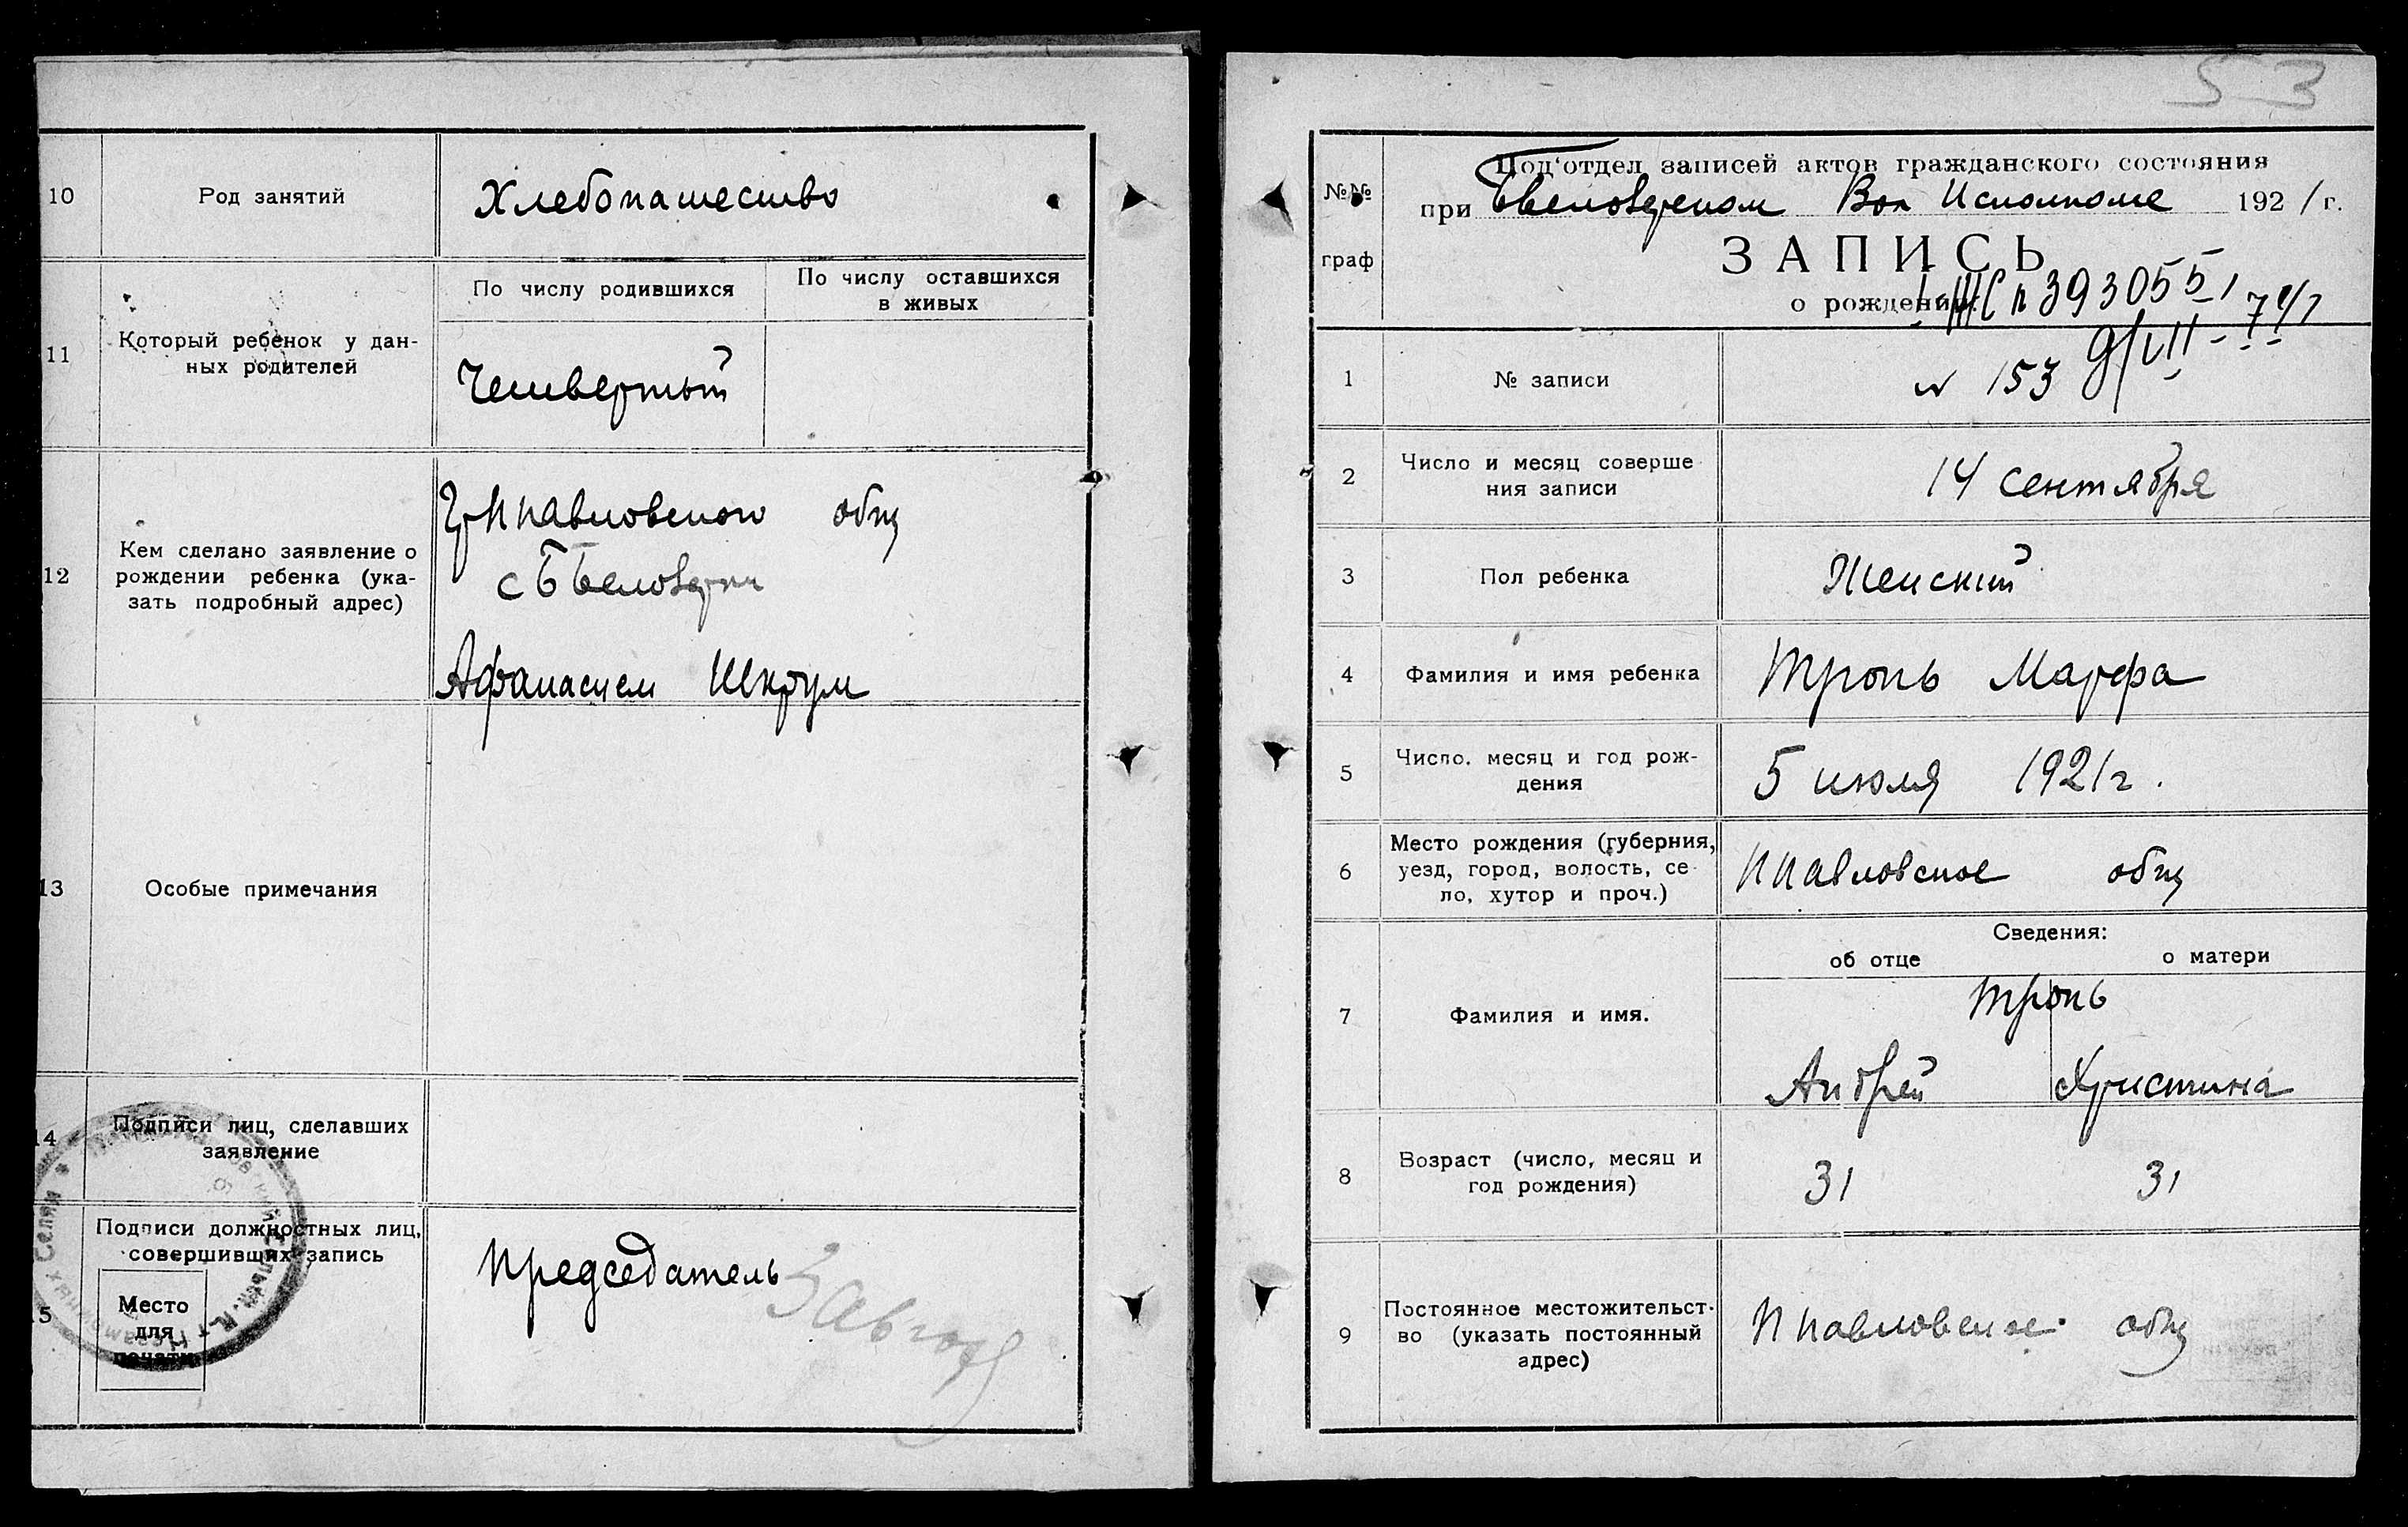 10
Род занятий
Хлебопашество
11
Который ребенок у дан-
ных родителей
По числу родившихся
По числу оставшихся
в живых
Четвертый
12
Кем сделано заявление о
рождении ребенка (ука-
зать подробный адрес)
Гр Ппавловского общ
с Ббеловерки
Афанасием Шкрум
13
Особые примечания
14
Подписи лиц, сделавших
заявление
15
Подписи должностных лиц,
совершивших запись
Место
для
печати
Председатель
53
№№
граф
Под'отдел записей актов гражданского состояния
при Ббеловерском Вол Исполкоме 1921 г.
ЗАПИСЬ
о рождении.
1
№ записи
№ 153
2
Число и месяц соверше
ния записи
14 сентября
3
Пол ребенка
Женский
4
Фамилия и имя ребенка
Тронь Марфа
5
Число, месяц и год рож-
дения
5 июля 1921 г.
6
Место рождения (губерния,
уезд, город, волость, се-
ло, хутор и проч.)
Ппавловское общ
Сведения:
об отце
о матери
7
Фамилия и имя.
Тронь
Андрей
Христина
8
Возраст (число, месяц и
год рождения)
31
31
9
Постоянное местожительст-
во (указать постоянный
адрес)
Ппавловское общ